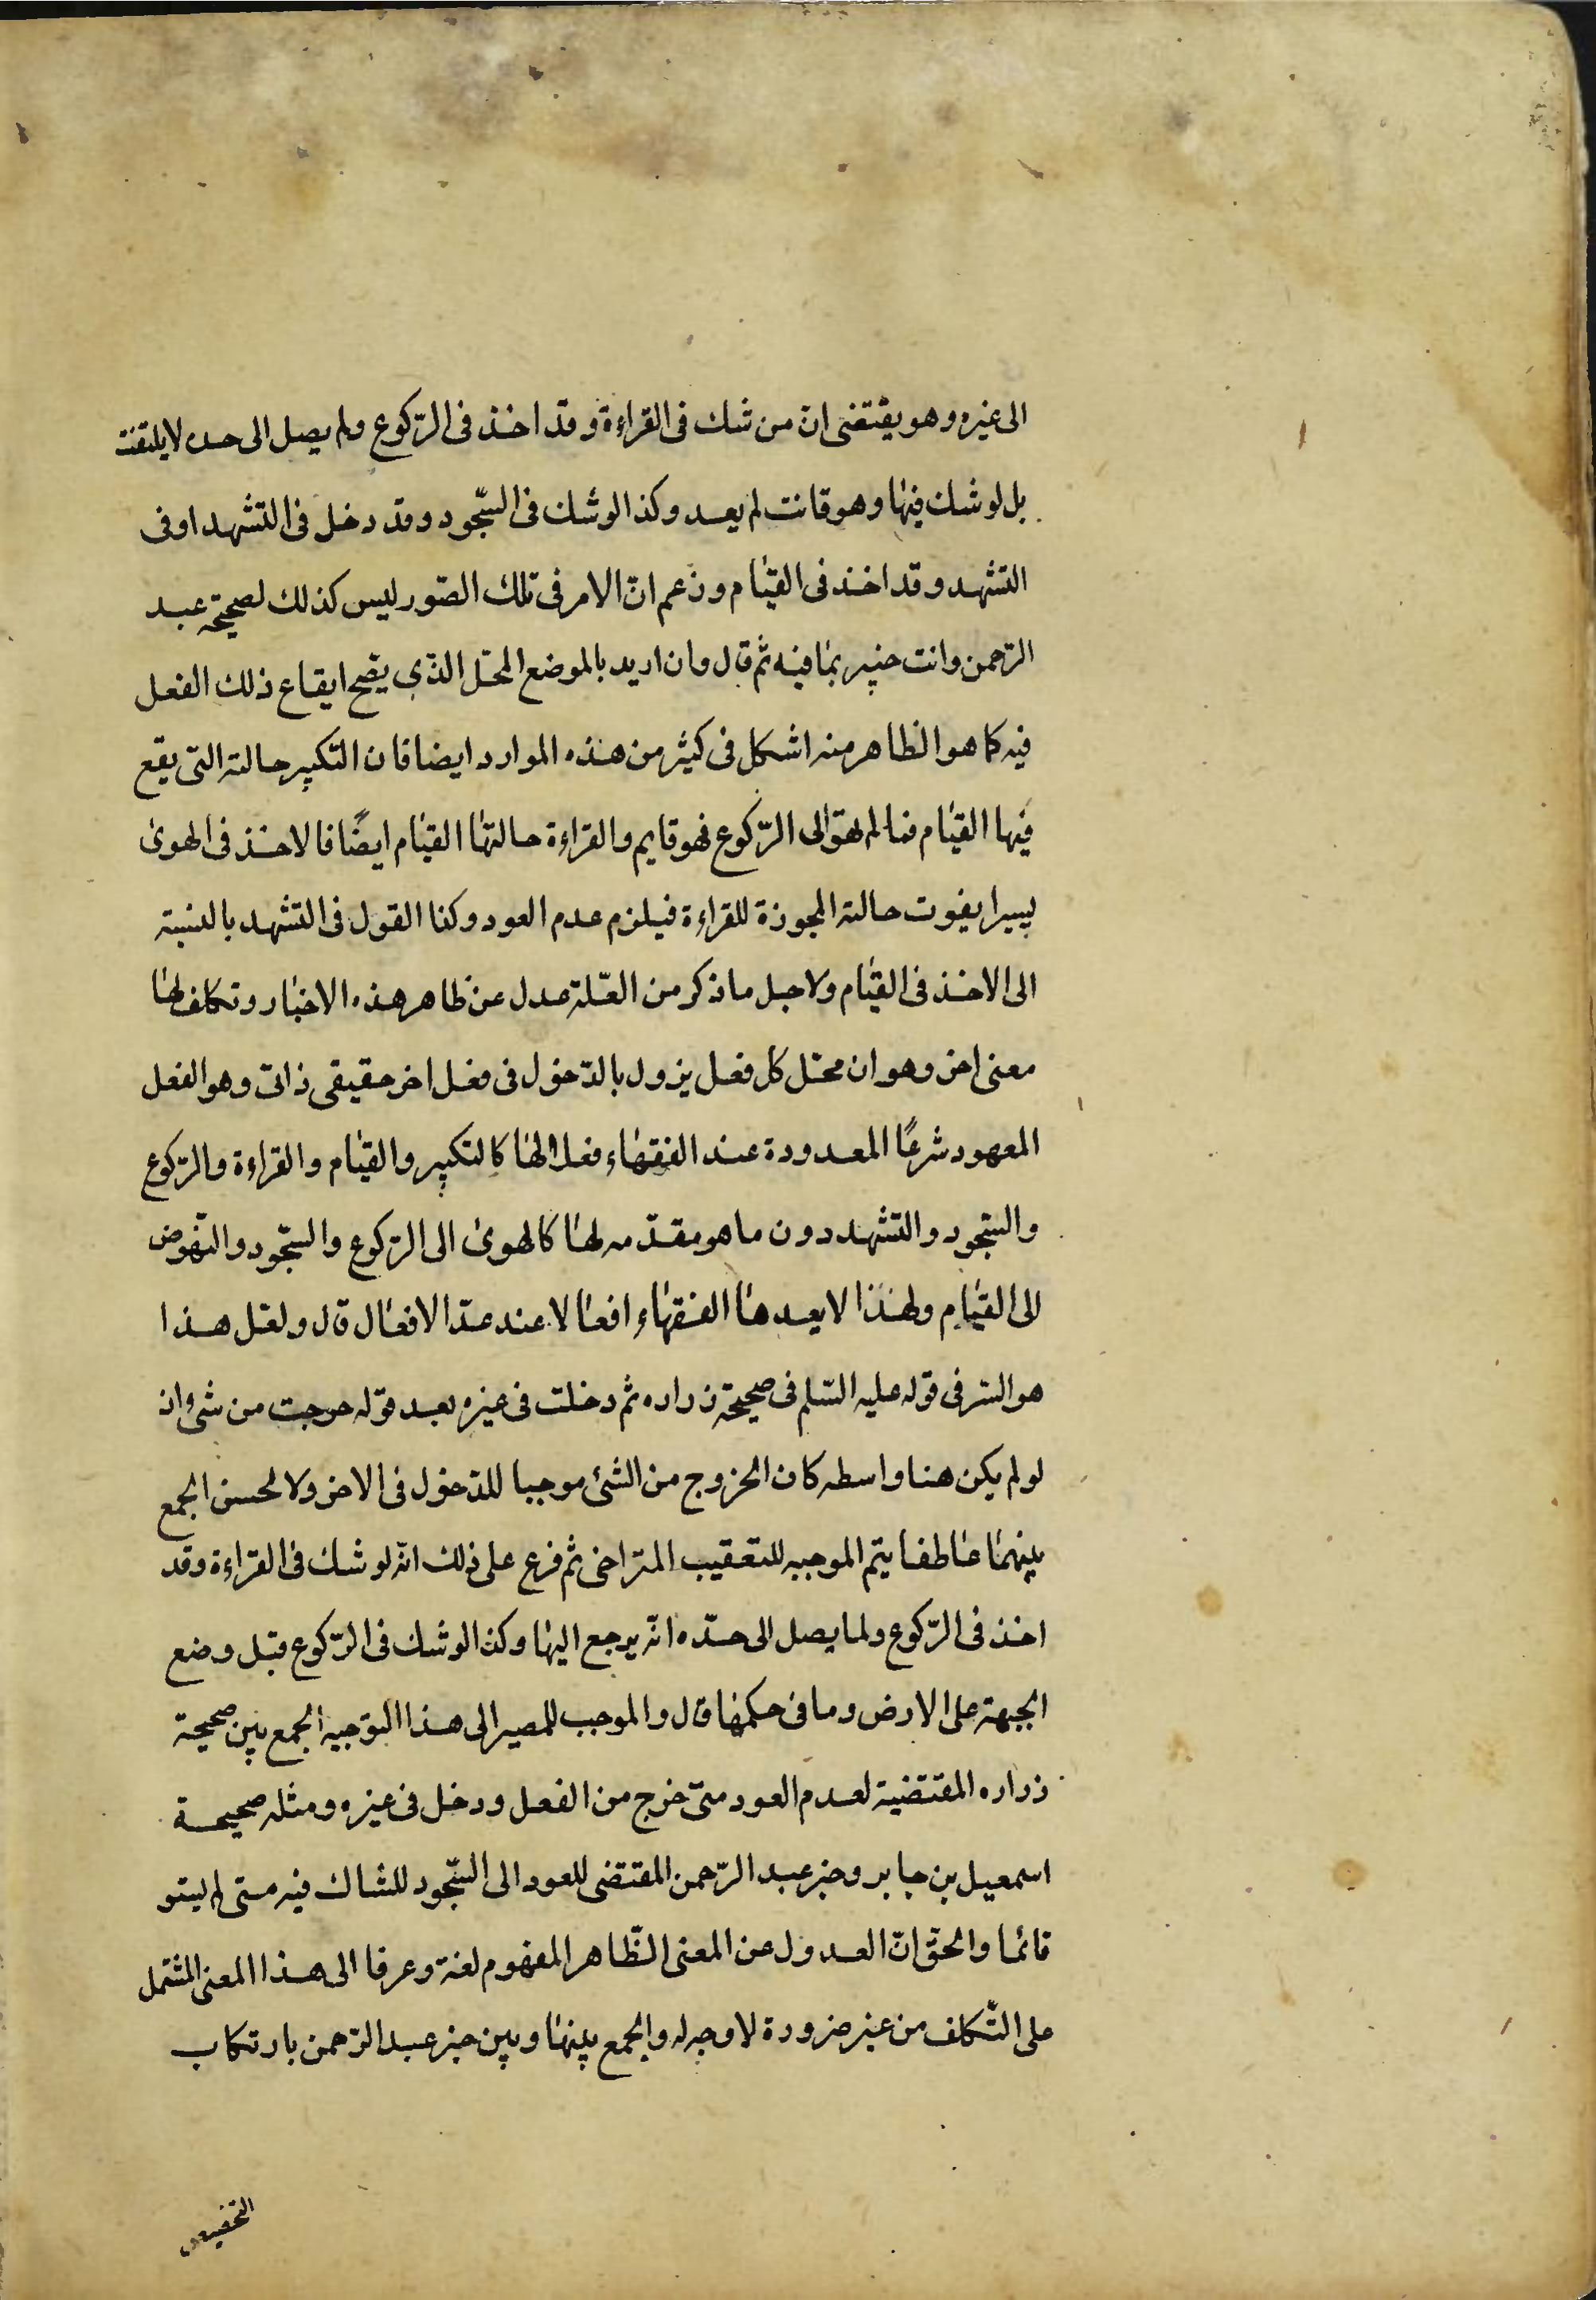 الى غيره وهو يقتضى ان من شك فى القراءة وقد اخذ فى الرّكوع ولم يصل الى حده لا يلتفت
بل لو شك فيها وهو قانت لم يعد وكذا لو شك فى السّجود وقد دخل فى التشهد او فى
التشهد وقد اخذ فى القيام وزعم انّ الامر فى تلك الصّور ليس كذلك لصحيحة عبد
الرّحمن وانت خبير بما فيه ثم قال وان اريد بالموضع المحلّ الذّى يصح ايقاع ذلك الفعل
فيه كما هو الظاهر منه اشكل فى كثير من هذه الموارد ايضا فان التكبير حالته التى يقع
فيها القيام فما لم يهو الى الرّكوع فهو قايم والقراءة حالتها القيام ايضًا فالاخذ فى الهوى
يسيرا يفوت حالته المجوزة للقراءة فيلزم عدم العود وكذا القول فى التشهد بالنسبة
الى الاخذ فى القيام ولاجل ما ذكر من العلّة عدل عن ظاهر هذه الاخبار وتكلف لها
معنى اخر وهو ان محل كل فعل يزول بالدّخول فى فعل اخر حقيقى ذاتى وهو الفعل
المعهود شرعًا المعدودة عند الفقهاء فعلا لها كالتكبير والقيام والقراءة والرّكوع
والسّجود والتشهد دون ما هو مقدّمه لها كالهوى الى الرّكوع والسّجود والنّهوض
الى القيام ولهذا لا يعدها الفقهاء افعالا عند عدّ الافعال قال ولعل هذا
هو السّر فى قوله عليه السّلم فى صحيحة زراره ثم دخلت فى غيره بعد قوله خرجت من شئ اذ
لو لم يكن هنا واسطه كان الخروج من الشئ موجبا للدّخول فى الاخر ولا لحسن الجمع
بينهما عاطفا بثم الموجبه للتعقيب المتراخى ثم فرع على ذلك انّه لو شك فى القراءة وقد
اخذ فى الرّكوع ولما يصل الى حدّه انّه يرجع اليها وكذا لو شك فى الرّكوع قبل وضع
الجبهة على الارض وما فى حكمها قال والموجب للمصير الى هذا التوجيه الجمع بين صحيحة
زراره المقتضية لعدم العود متى خرج من الفعل ودخل فى غيره ومثله صحيحة
اسمعيل بن جابر وخبر عبد الرّحمن المقتضى للعود الى السّجود للشاك فيه متى لم يستو
قائما والحقّ انّ العدول عن المعنى الظّاهر المفهوم لغة وعرفا الى هذا المعنى المشتمل
على التّكلف من غير ضرورة لا وجه له والجمع بينها وبين خبر عبد الرّحمن بارتكاب